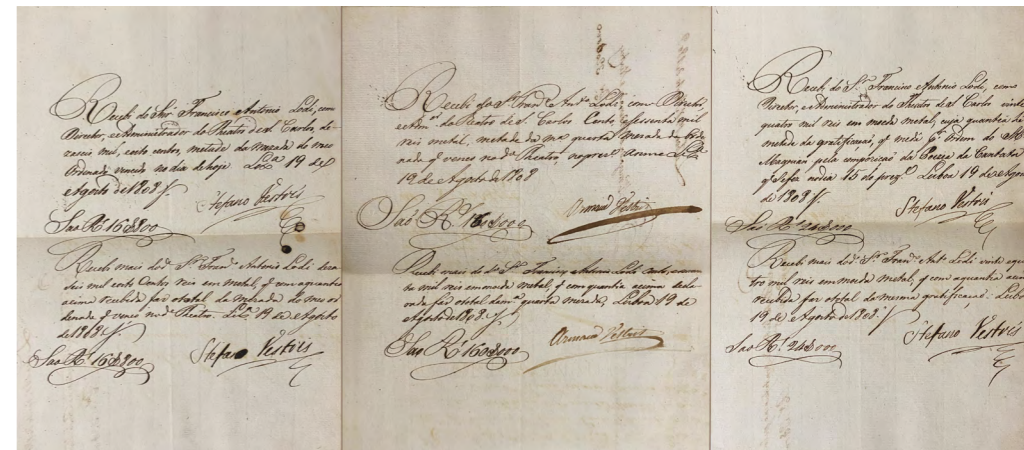 Recebi do Snr. Francisco Antonio Lodi, como
Director, e Administrador do Theatro de S. Carlos, de-
zaceis mil, e oito centos, metade da mezada do meu
Ordenado vencido no dia de hoje Lxa. 19 de
Agosto de 1808
Stefano Vestris
Saõ Rs. 16$800
Recebi mais do do. Sr. Franco. Antonio Lodi deza-
seis mil oito Centos reis em metal, q com aquantia
acima recebida faz ototal da mezada do meu or-
denado q venceo no do. Theatro Lxa. 19 de Agosto
de 1808
Saõ Rs. 16$800 Stefano Vestris
Recebi do Sr. Franco. Anto. Lodi, como Director,
e Adm.or do Theatro de S. Carlos Cento e sessenta mil
reis metal, metade da ma. quarta Mezada de Orde-
nado q venceo no do. Theatro,
19 de Agosto de 1808
Saõ Rs. 160$000 Armand Vestris
Recebi mais do do. Sr. Francisco Antonio Lodi Cento, e sessen-
ta mil reis em moeda metal, q com quantia acima rece-
bida faz ototal da ma. quarta mezada, Lisboa 19 de
Agosto de 1808.
Saõ Rs. 160$000 Armand Vestris
Recebi do Sr. Francisco Antonio Lodi, como
Director, e Administrador do Theatro de S. Carlos vinte
quatro mil reis em moeda metal, cuja quantia he
metade da gratificaçaõ, q me dá Pr. ordem do
Magnani pela compoziçaõ da Poezia da Cantata
q se fes no dia 15 do prezte. Lisboa 19 de Agosto
de 1808
Stefano Vestris
Saõ Rs. 24$000
Recebi mais do do. Sr. Franco. Anto. Lodi vinte equa-
tro mil reis em moeda metal, q com aquantia acima
recebida faz ototal da mesma gratificaçaõ. Lisboa
19 de Agosto de 1808.
Saõ Rs. 24$000 Stefano Vestris